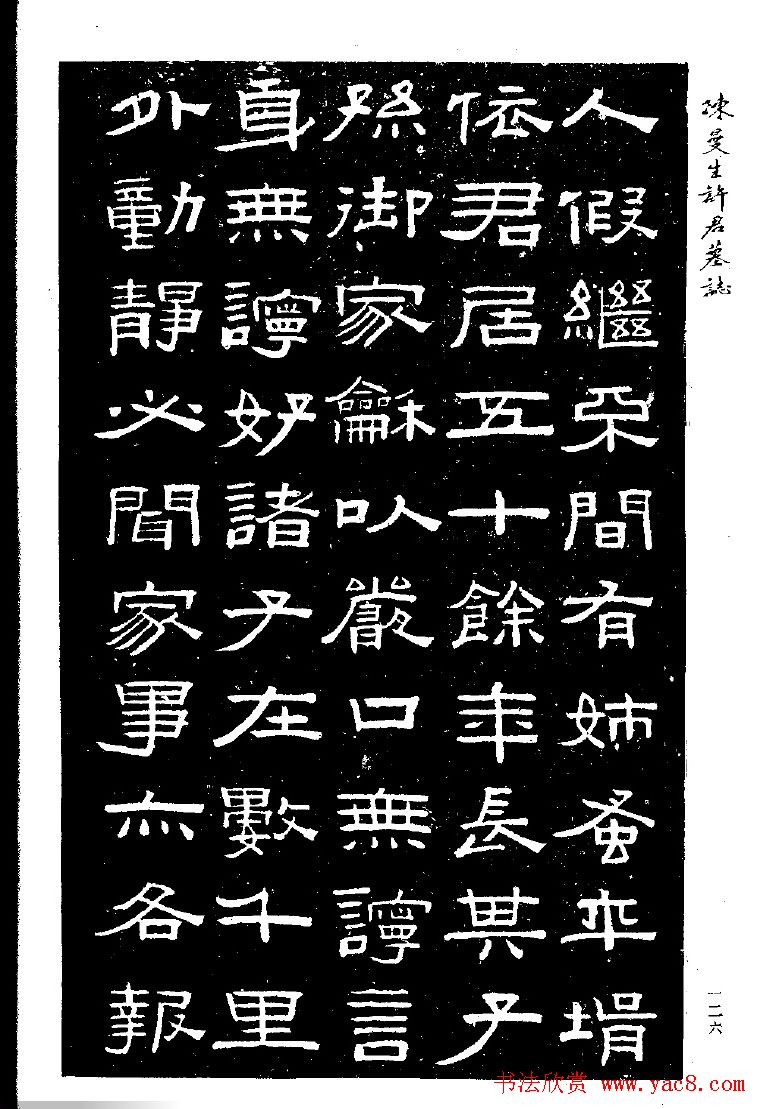 陳曼生許君墓誌
人假繼間有姉蚤卒壻
依君居五十餘年長其子
孫御家龢㕥嚴口無言
身無好諸子在數千里
外動靜必聞家事亦各報
一二六
书法欣赏 www.yac8.com